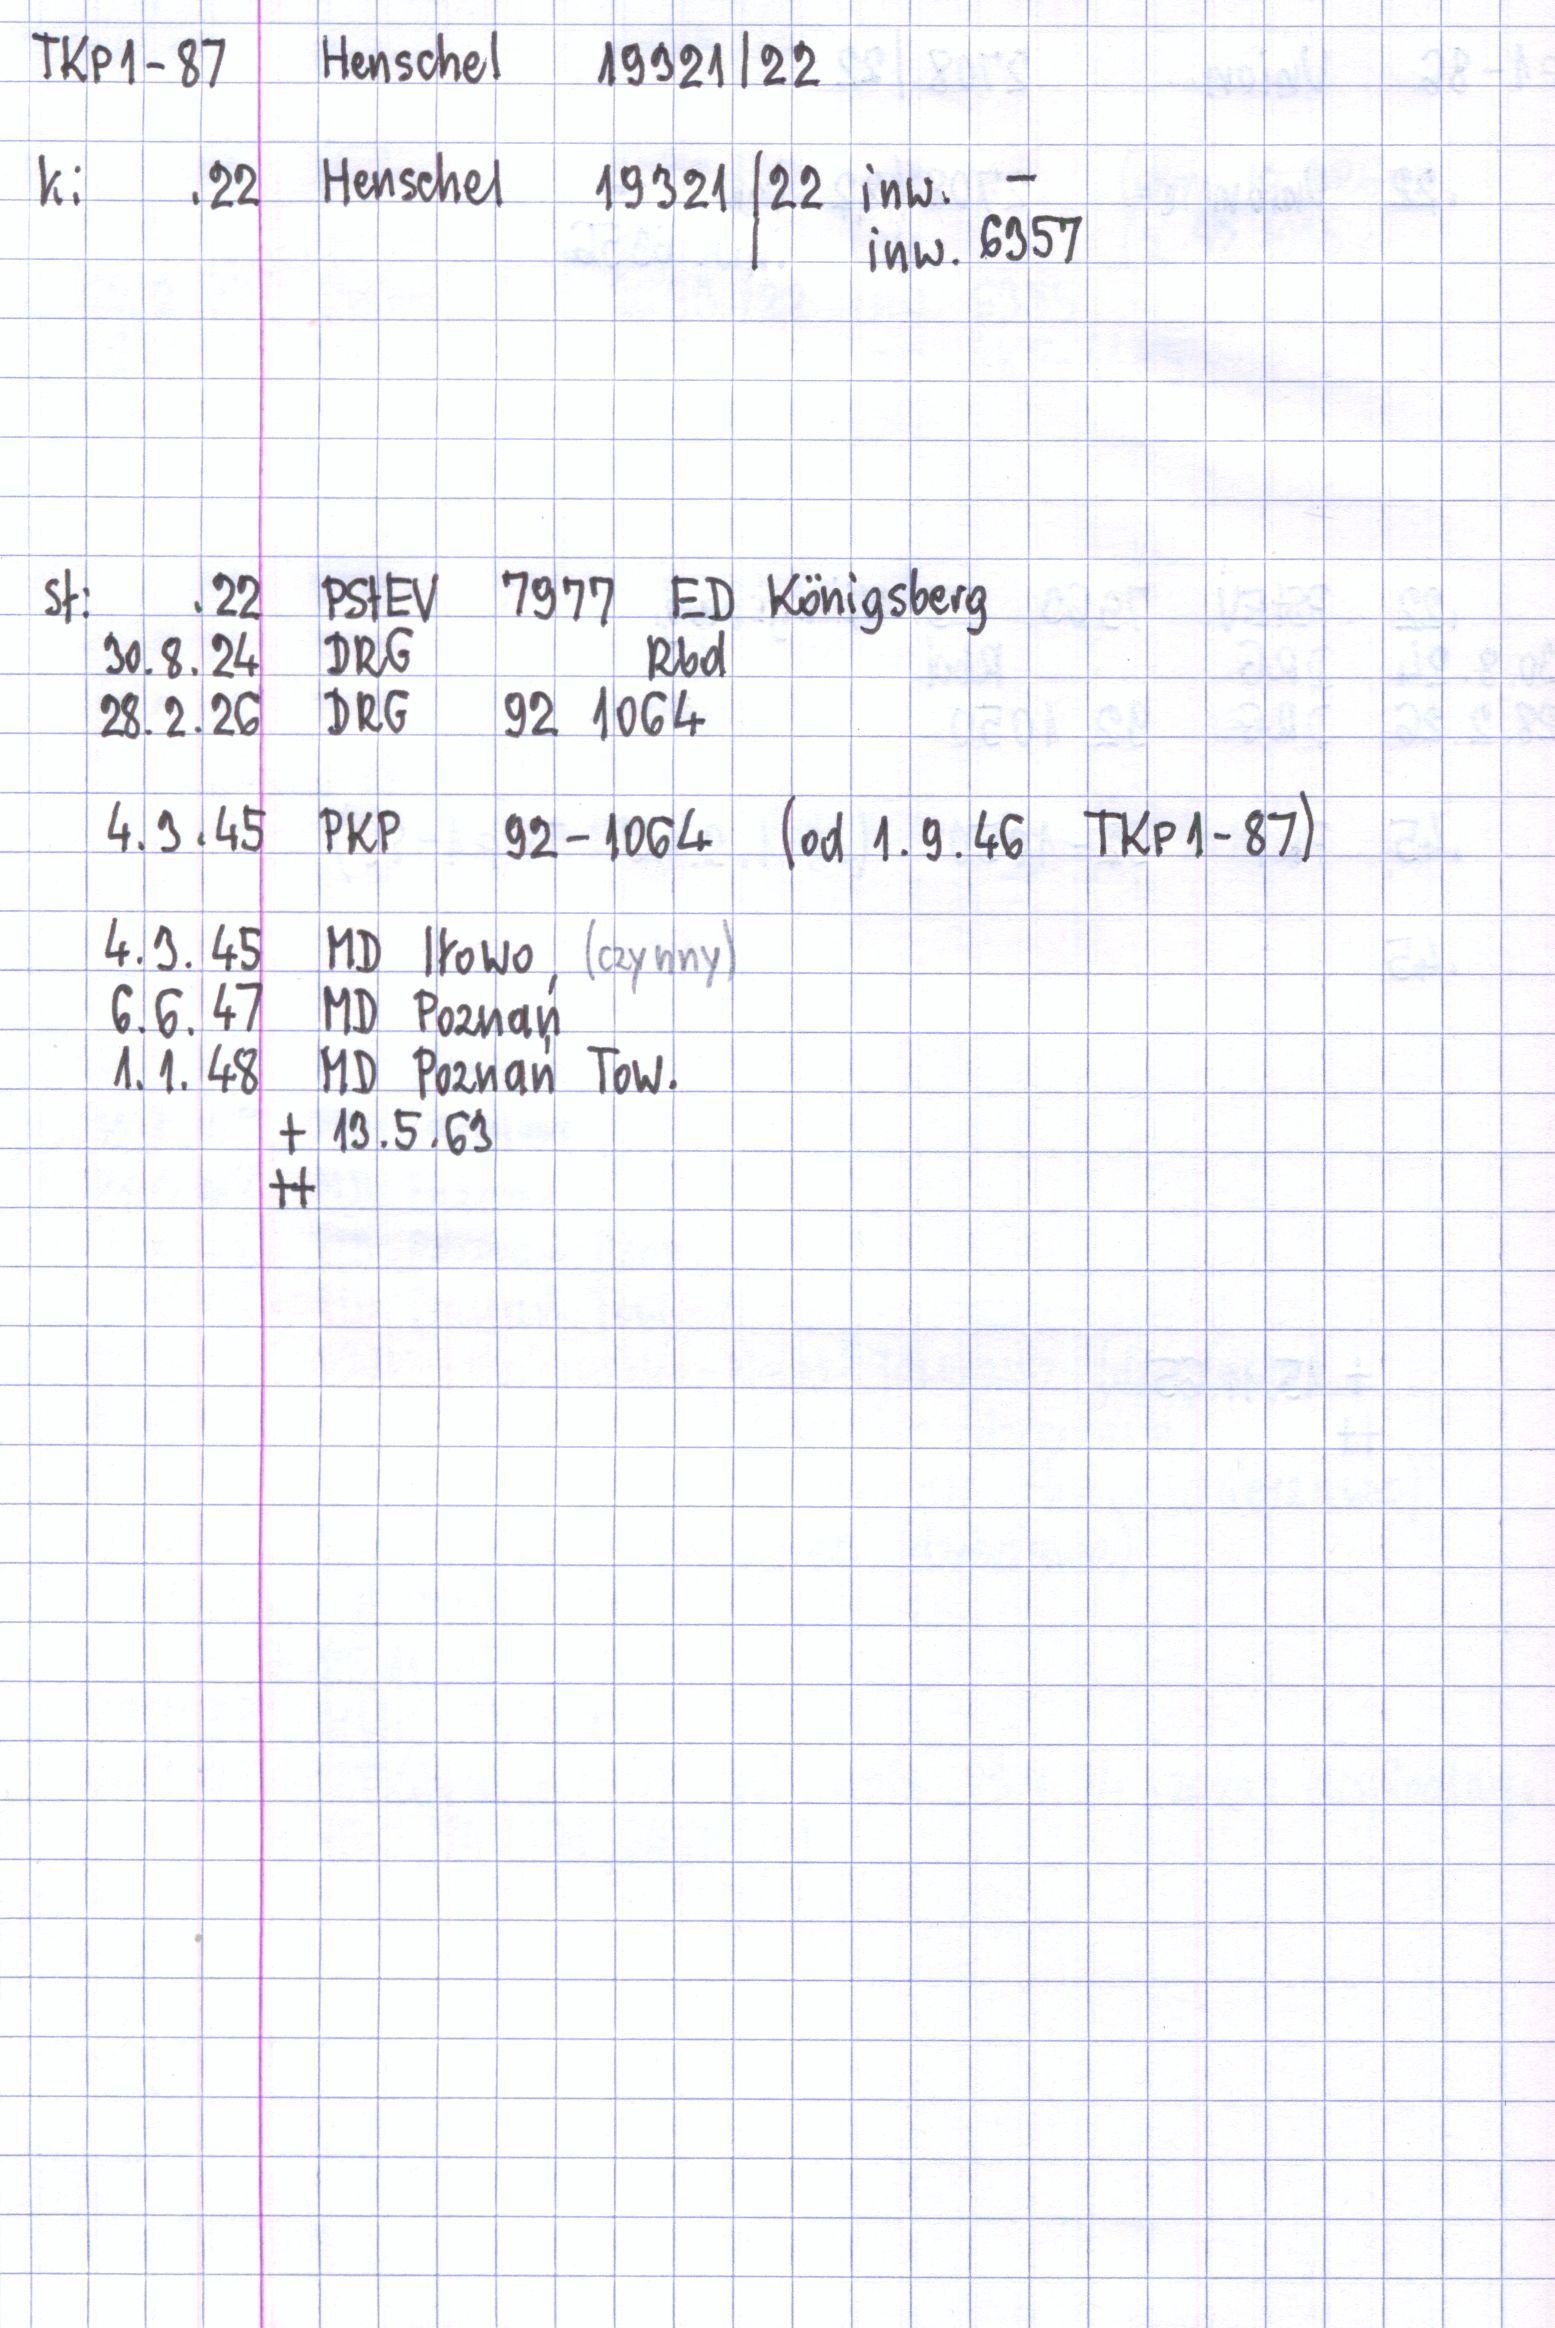 TKp1-87 Henschel 19321/22
k: .22 Henschel 19321/22 inw. –
inw. 6357
st: .22 PStEV 7977 ED Königsberg
30.8.24 DRG Rbd
28.2.26 DRG 92 1064
4.3.45 PKP 92-1064 (od 1.9.46 TKp1-87)
4.3.45 MD Iłowo (czynny)
6.6.47 MD Poznań
1.1.48 MD Poznań Tow.
+ 13.5.63
++